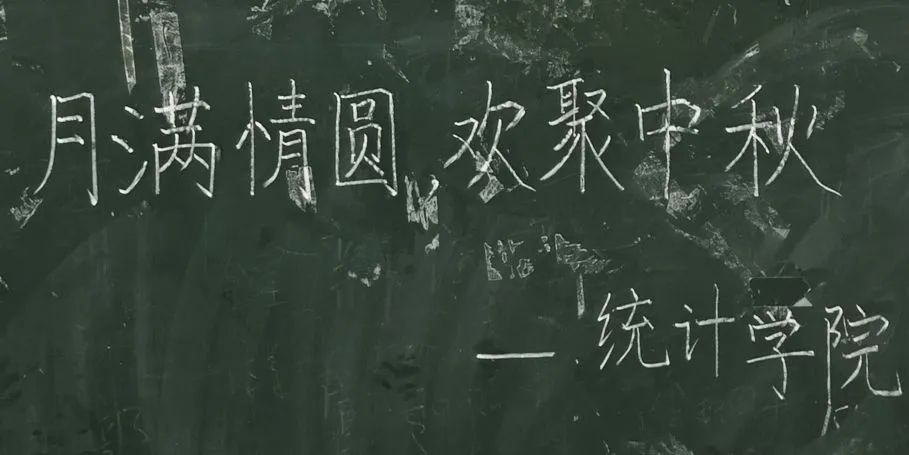 月满情圆 欢聚中秋
—统计学院